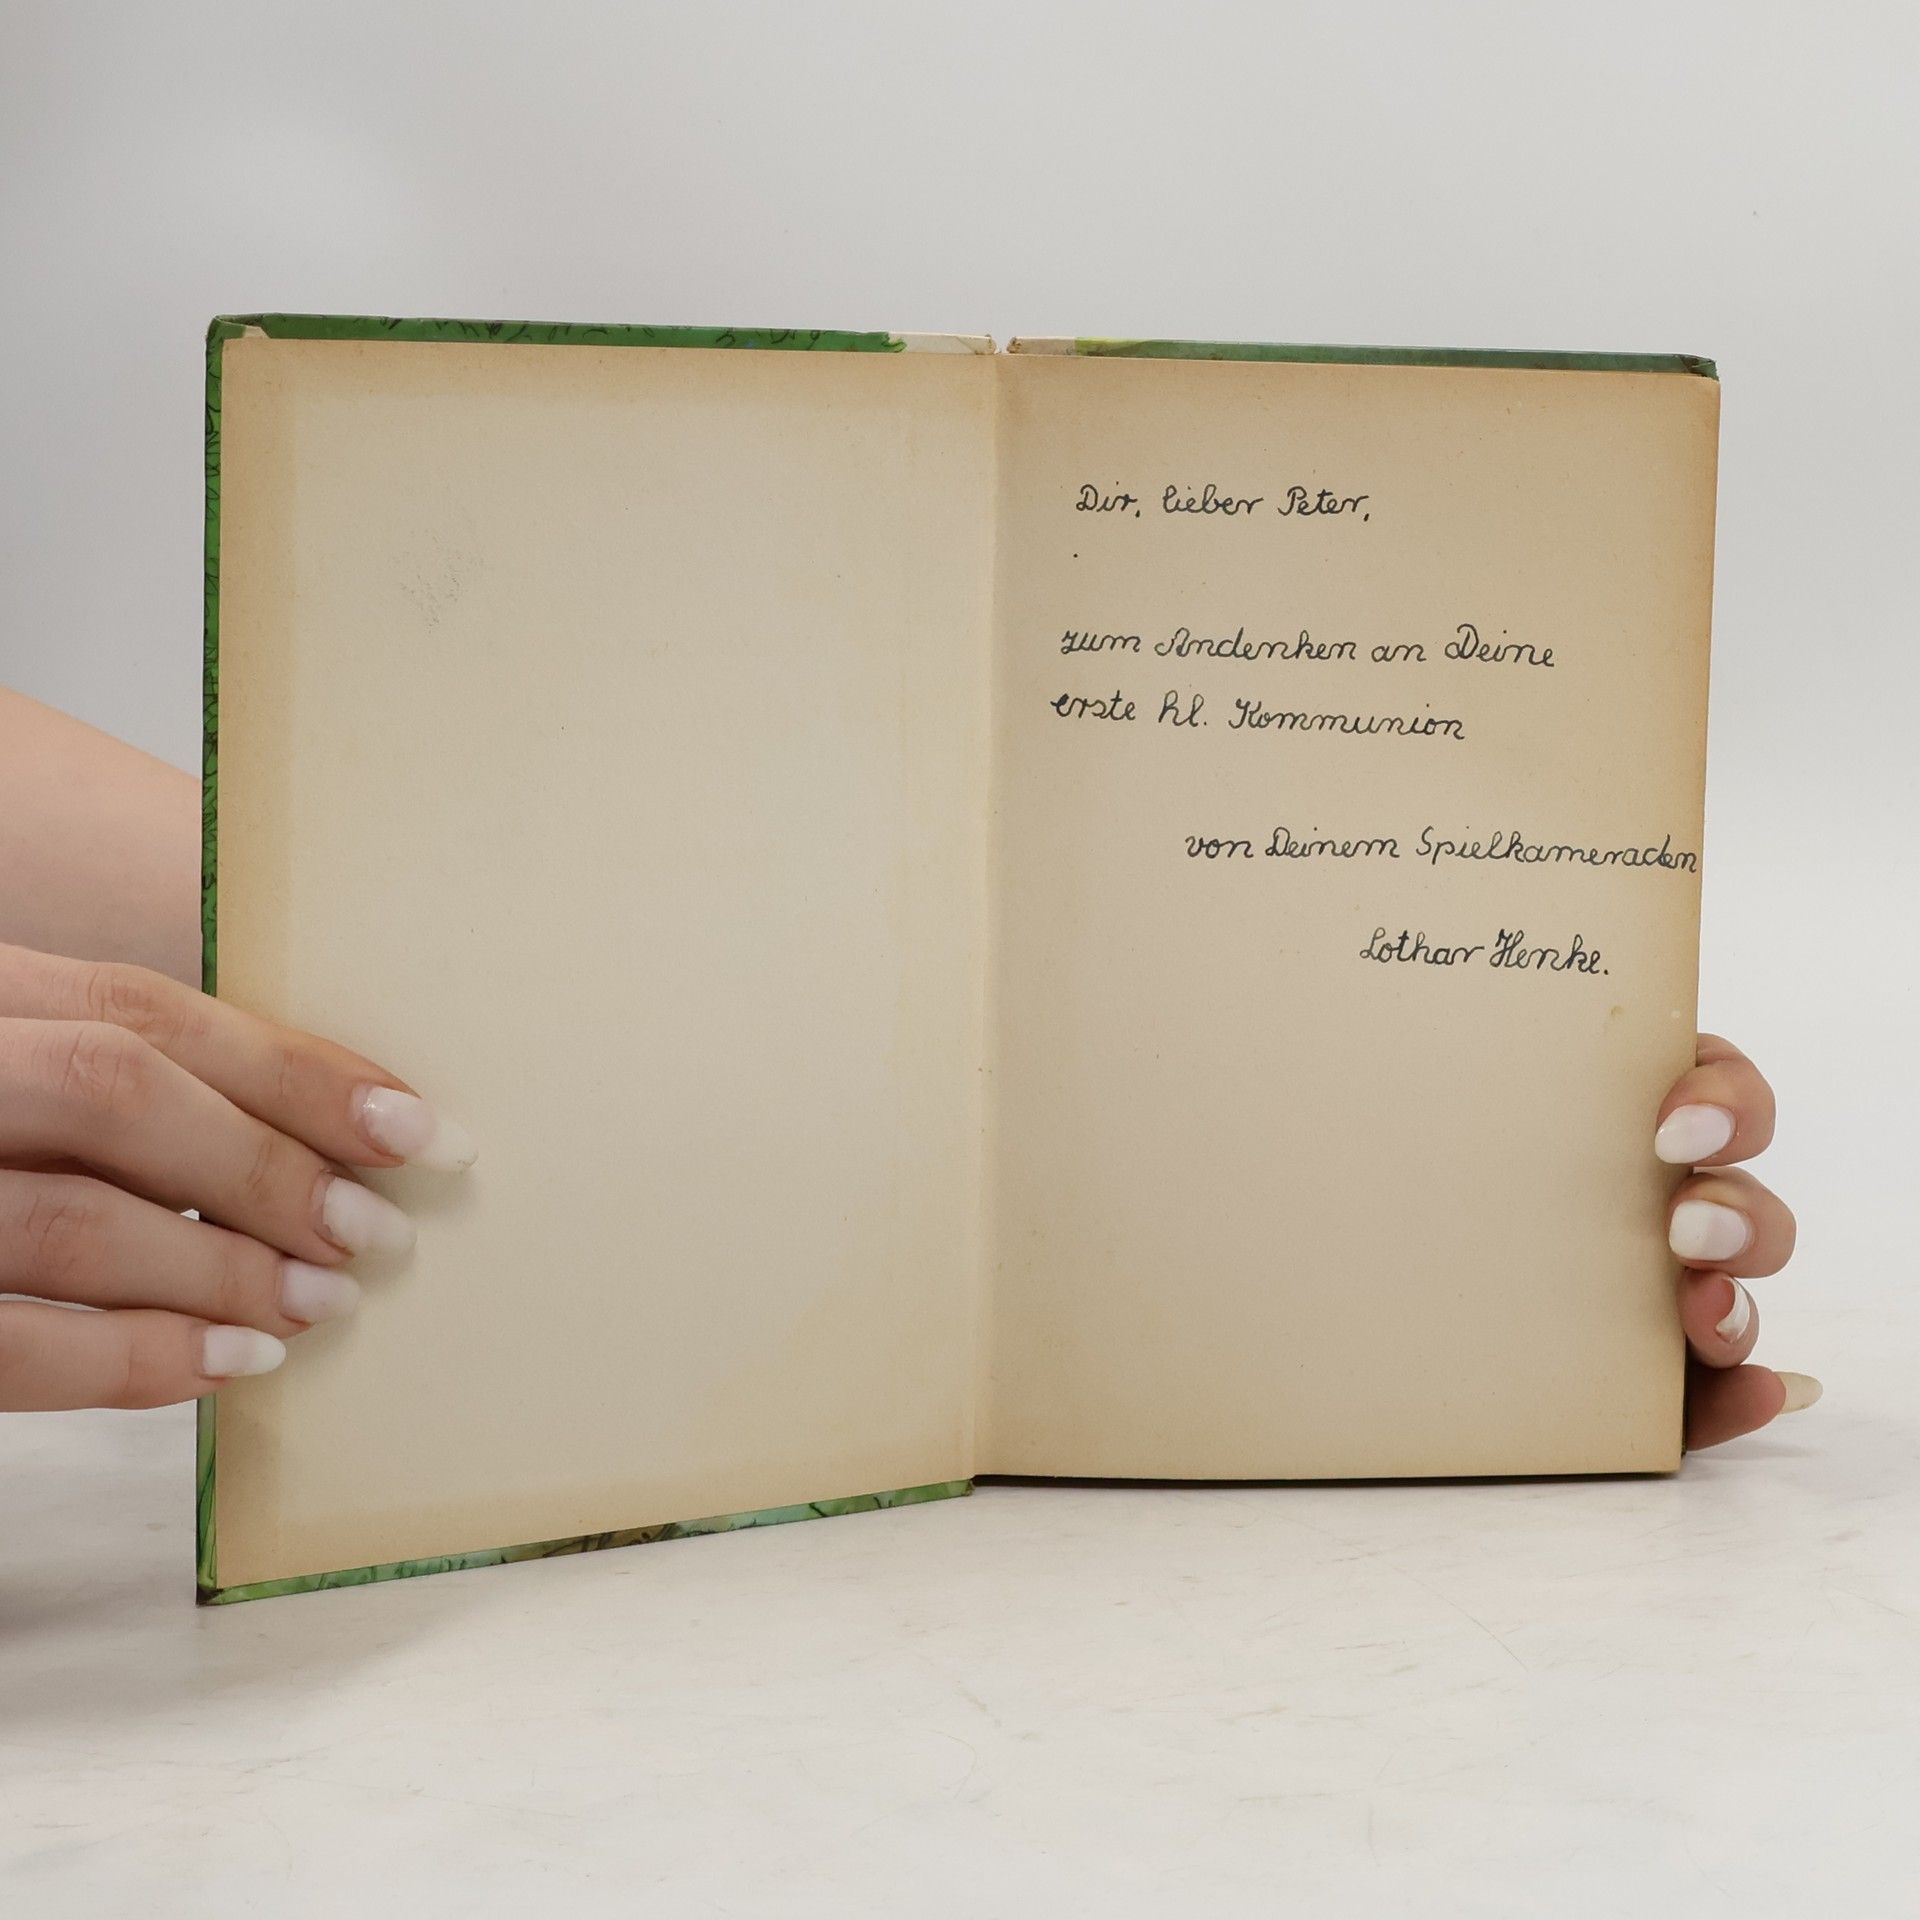 Dir, lieber Peter,
zum Andenken an Deine
erste hl. Kommunion
von Deinem Spielkameraden
Lothar Henke.